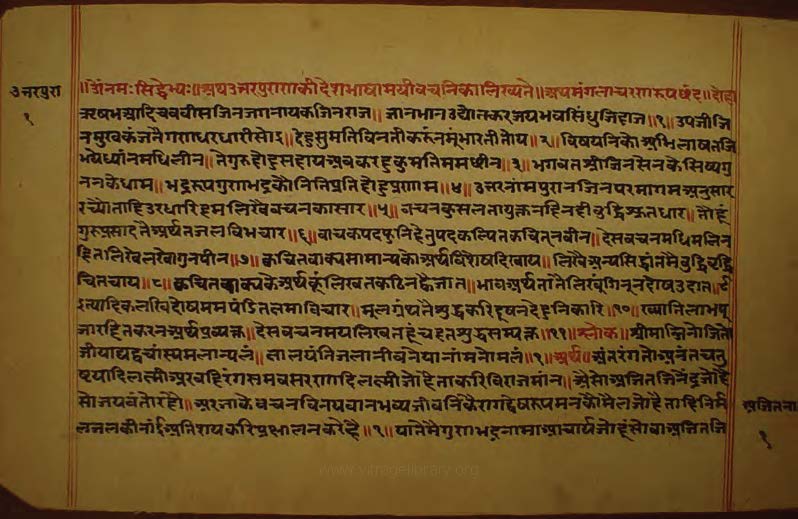 उत्तरपुरा
१
॥ॐनमःसिद्धेभ्यः॥अथउत्तरपुराणकीदेशभाषामयीवचनिकालिख्यते॥अथमंगलाचरणरूपछंद॥दोहा
ऋषभआदिचववीसजिनजगनायकजिनराज॥ज्ञानभानउद्योतकरजयभवसिंधुजिहाज॥१॥उपजीजि
नमुखकंजतैगराधरधारीसोइ॥देहुसुमतिविनतीकरूंनमूंभारतीतोय॥२॥विषयनिकोअभिलाषतजि
भयेध्यांनमधिलीन॥तेगुरुहोहुसहायअबकरहुकुमतिममछीन॥३॥भगवतश्रीजिनसेनकेसिष्यगु
ननकेधाम॥भद्ररूपगुणभद्रकौनितिप्रतिहोहुप्रणाम॥४॥उत्तरनांमपुरानजिनपरमागमअनुसार
रच्यौताहिउरधारिहमलिखैवचनकासार॥५॥वचनकुसलतायुक्तनहिनहीबुद्धिश्रुतधार॥तोहूं
गुरुप्रसादतैअर्थतजलविभचार॥६॥वाचकपदफुनिहेतुपदकल्पितकचित्नवीन॥देसवचनमधिमलिन
हितलिखेलखेगुनपीन॥७॥कचितवाक्यसामान्यकोअर्थविशेषदिखाय॥लिखैअन्यसिद्धांततैबुद्धिचढ़ि
चितचाय॥८॥कचितवाक्यकेअर्थकूंलिखतकठिनह्वैजात॥भावअर्थतातैलिखूंगिननदोषउदात॥९
इत्यादिकलखिदोषममपंडितक्षमाविचार॥मूलग्रंथतैशुद्धकरिदूषनदेहुनिकारि॥१०॥ख्यातिलाभपू
जारहितकरनअर्थप्रव्यक्त॥देसवचनमयलिखतहूंचहतशुद्धसम्यक्त॥११॥श्लोक॥श्रीमान्जिनोजितो
जीयाद्यद्वचांस्यमलान्यलं॥क्षालयंतिजलानीवनेयानांमनोमलं॥१॥अर्थ॥अंतरंगतोअनंतचतु
ष्टयादिलक्ष्मीअरबहिरंगसमवसरणादिलक्ष्मीजोहैताकरिविराजमांन॥असोअजितजिनेंद्रजोहै
सोजयवंतोरहो॥अरजाकेवचनविनयवानभव्यजीवनिकैरागद्वेषरूपमनकौमैलजोहैताहिनिर्म
लजलकीनांईअतिशयकरिप्रक्षालनकरेहै॥१॥यातैमैगुणभद्रनामाआचार्यजोहूंसोवाअजितजि
अजितना
१
www.vitragelibrary.org